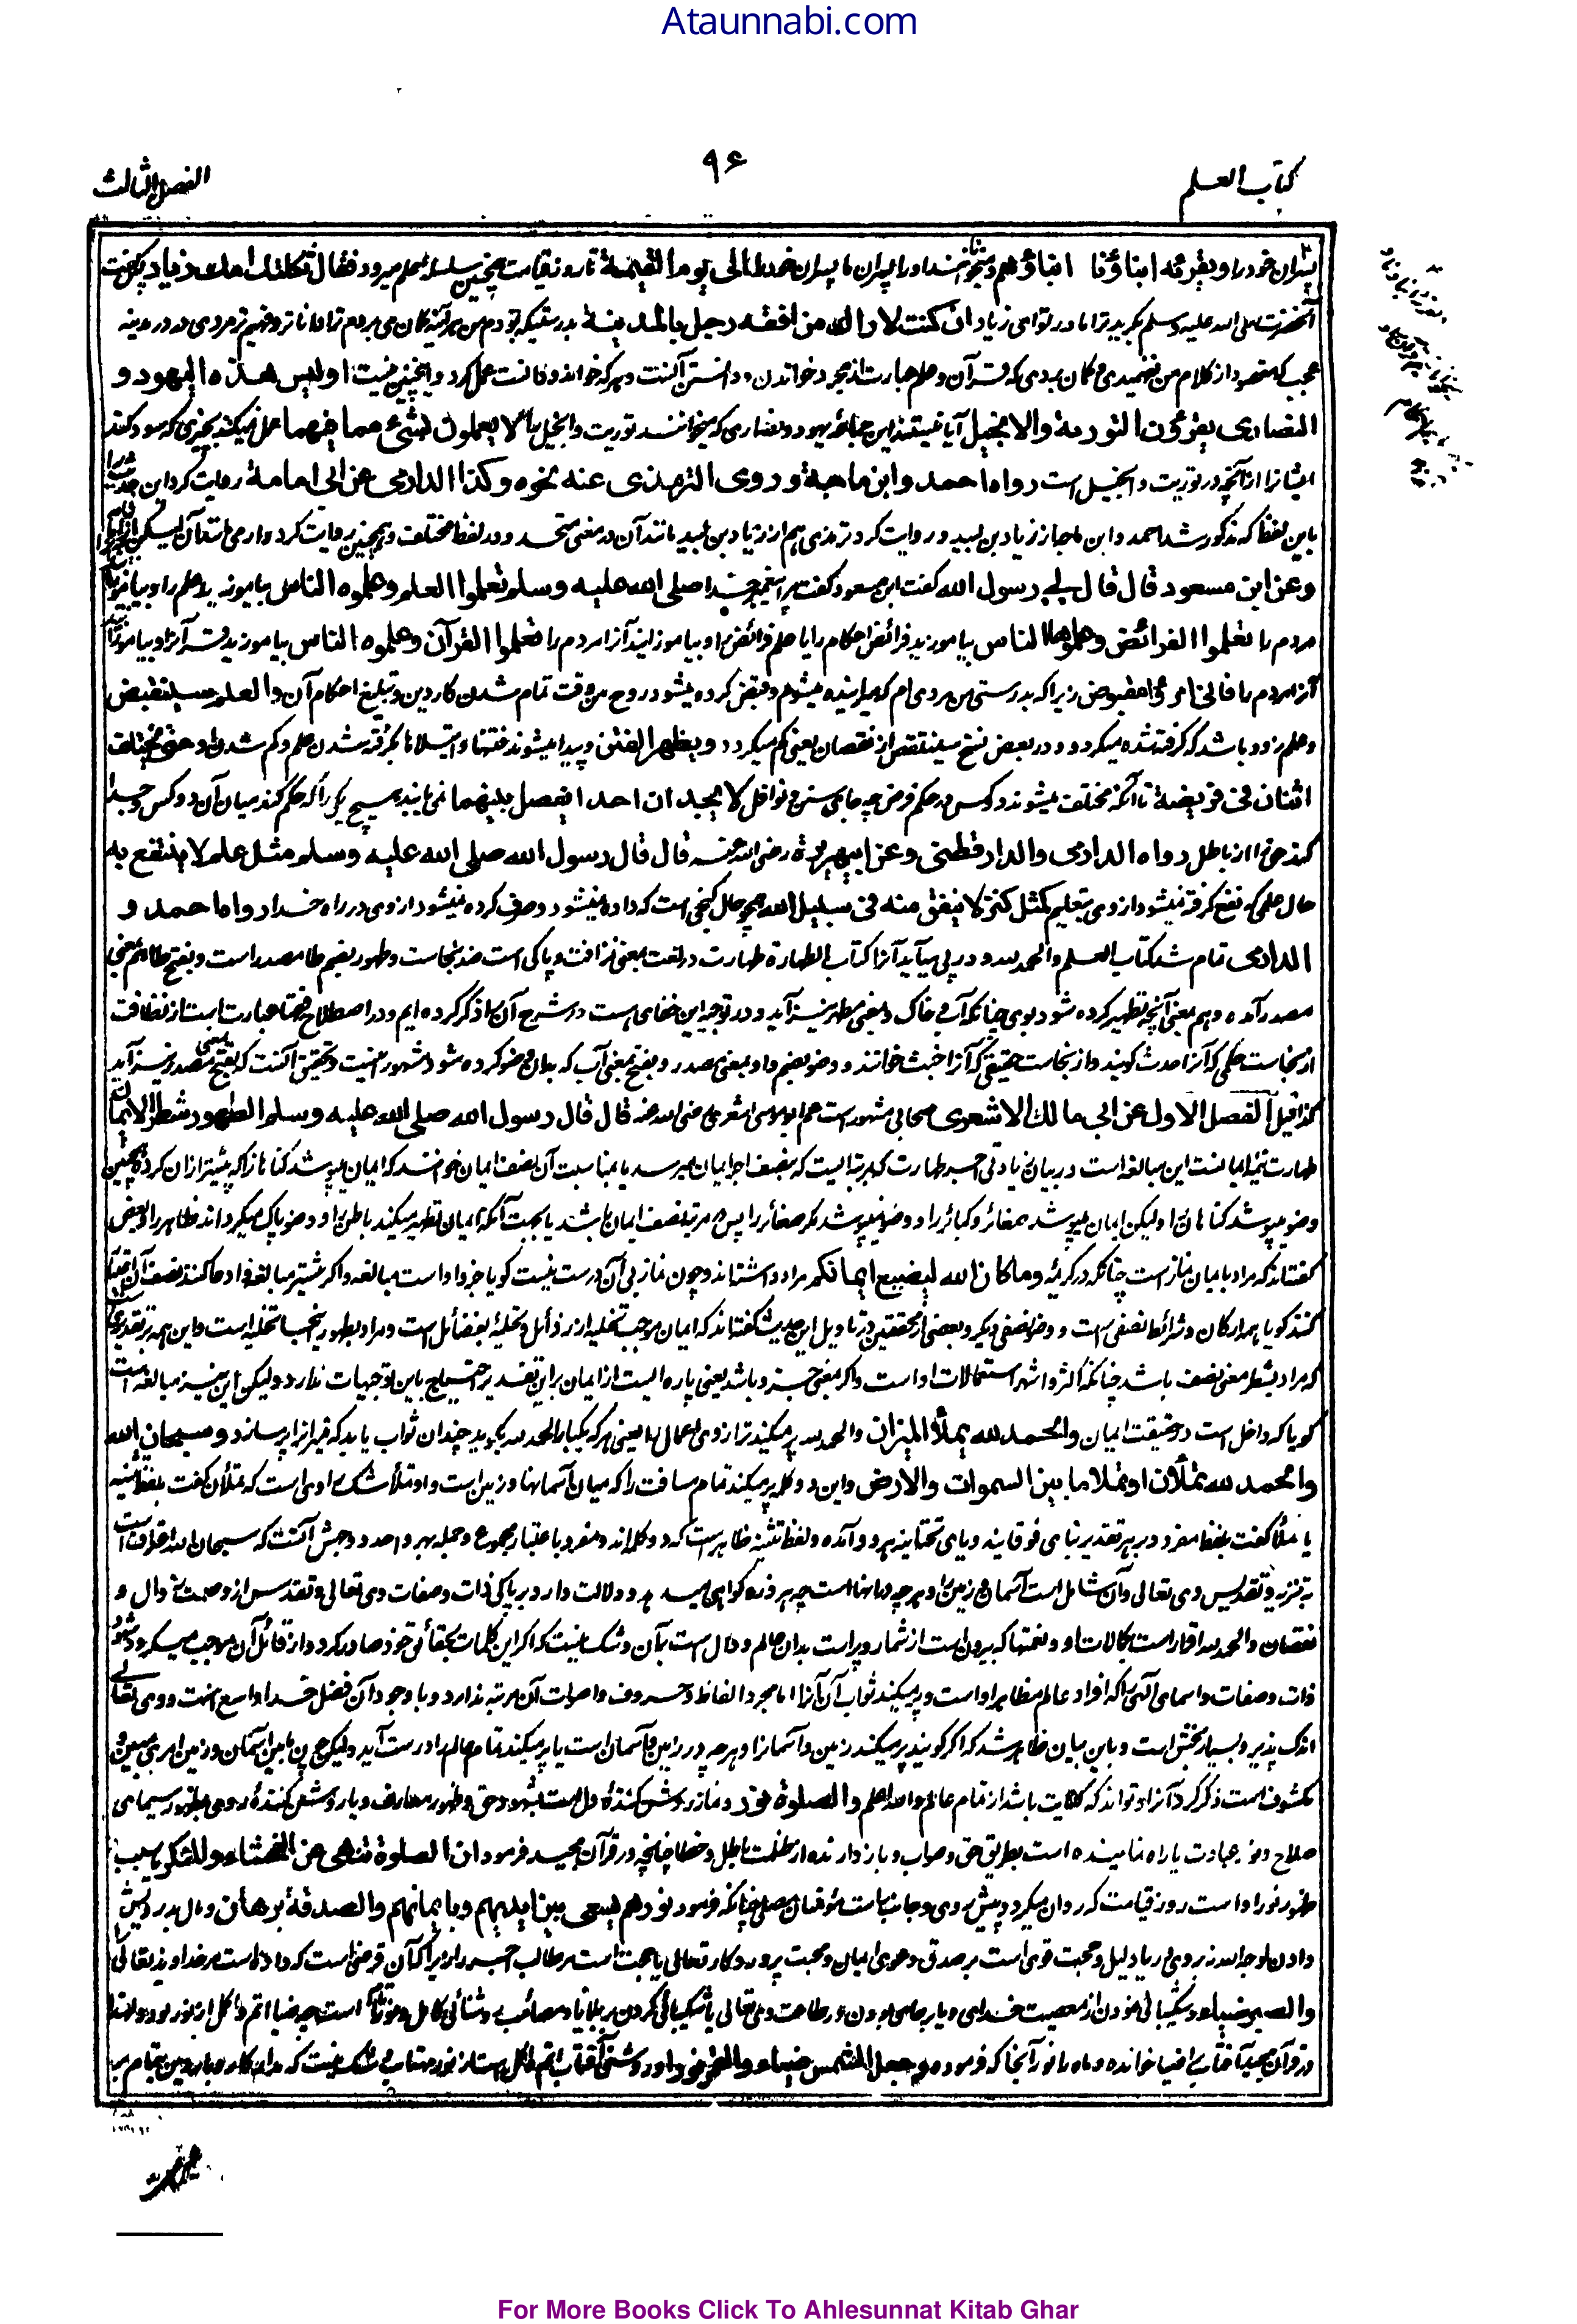 Ataunnabi.com
كتاب العلم
۹۶
الفصل الثالث
پسران خود را ويقرئه ابناؤنا ابناؤهم پسران ما پسران خود را الى يوم القيمة تا روز قیامت همچنین سلسلهٔ علم میرود فقال ثكلتك امك زياد پس گفت
آنحضرت صلی الله علیه وسلم بگرید ترا مادر تو ای زیاد ان كنت لاراك من افقه رجل بالمدينة بدرستیکه بودم من هرآینه گمان می بردم ترا داناتر و فهیم تر مردی که در مدینه
عجب که مقصود از کلام من نفهمیدی و گمان بردی که قرآن و علم عبارت از مجرد خواندن و دانستن آنست و هر که خواند و دانست عمل کرد و اینچنین نیست اوليس هذه اليهود و
النصارى يقرؤن التورىة والانجيل آیا نیستند این جماعه یهود و نصاری که میخوانند توریت و انجیل را لا يعملون بشئ مما فيهما عمل نمیکنند بچیزی که سود کند
ایشانرا از آنچه در توریت و انجیل است رواه احمد وابن ماجة وروى الترمذى عنه نحوه وكذا الدارمى عن ابى امامة روایت کرد این حدیث را
باین لفظ که مذکور شد احمد و ابن ماجه از زیاد بن لبید و روایت کرد ترمذی هم از زیاد بن لبید مانند آن در معنی متحد و در لفظ مختلف و همچنین روایت کرد دارمی مانند آن لیکن از ابی امامه
وعن ابن مسعود قال قال لى رسول الله گفت ابن مسعود گفت مرا پیغمبر خدا صلى الله عليه وسلم تعلموا العلم وعلموه الناس بیاموزید علم را و بیاموزانید
مردم را تعلموا الفرائض وعلموها الناس بیاموزید فرائض احکام را یا علم فرائض را و بیاموزانید آنرا مردم را تعلموا القرآن وعلموه الناس بیاموزید قرآنرا و بیاموزانید
آنرا مردم را فانى امرؤ مقبوض زیرا که بدرستی من مردی ام که میرانیده میشوم و قبض کرده میشود روح من وقت تمام شدن کار دین و تبلیغ احکام آن والعلم سينقبض
و علم زود باشد که گرفته شده میگردد و در بعض نسخ سينتقص از نقصان یعنی کم میگردد ويظهر الفتن و پیدا میشوند فتنها و ابتلاها بگرفته شدن علم و کم شدن او حتى يختلف
اثنان فى فريضة تا آنکه مختلف میشوند دو کس در حکم فرض چه جای سنن و نوافل لا يجدان احدا يفصل بينهما نمی یابند هیچ یکی را که حکم کند میان آن دو کس و جدا
کند حق را از باطل رواه الدارمى والدارقطنى وعن ابى هريرة رضی الله عنه قال قال رسول الله صلى الله عليه وسلم مثل علم لا ينتفع به
حال علمی که نفع گرفته نمیشود از وی بتعلیم كمثل كنز لا ينفق منه فى سبيل الله همچو حال گنجی است که داده نمیشود و صرف کرده نمیشود از وی در راه خدا رواه احمد و
الدارمى تمام شد كتاب العلم والحمد لله و در پی می آید آنرا كتاب الطهارة طهارت در لغت بمعنی نزافت و پاکی است ضد نجاست و طهور بضم طا مصدر است و بفتح طا هم بمعنی
مصدر آمده و هم بمعنی آنچه تطهیر کرده شود بوی چنانکه آب و خاک و بمعنی مطهر نیز آید و در توجیه این خفای هست در شرح آن را ذکر کرده ایم و در اصطلاح فقها عبارت است از نظافت
از نجاست حکمی که آنرا حدث گویند و از نجاست حقیقی که آنرا خبث خوانند و وضو بضم واو بمعنی مصدر و بفتح بمعنی آب که بدان وضو کرده شود مشهور اینست و تحقیق آنست که بفتح بمعنی مصدر نیز آید
کذا قیل الفصل الاول عن ابى مالك الاشعرى صحابی مشهور است عم ابو موسی اشعری رضی الله عنه قال قال رسول الله صلى الله عليه وسلم الطهور شطر الايمان
طهارت نیمهٔ ایمانست این مبالغه است در بیان زیادتی اجر طهارت که بمرتبه ایست که بنصف اجر ایمان میرسد یا بمناسبت آن نصف ایمان خوانند که ایمان میپوشد گناهانرا که پیشتر از آن کرده همچنین
وضو میپوشد گناهان را ولیکن ایمان میپوشد صغائر و کبائر را و وضو میپوشد مگر صغائر را پس در مرتبه نصف ایمان باشد یا بجهت آنکه ایمان تطهیر میکند باطن را و وضو پاک میگرداند ظاهر را و بعض
گفته اند که مراد بایمان نماز است چنانکه در کریمه وما كان الله ليضيع ايمانكم مراد داشته اند و چون نماز بی آن درست نیست گویا جزو او است مبالغه و اگر بیشتر مبالغه و ادعا کنند نصف آن اعتبار
کنند گویا همه ارکان و شرائط نصفی است و وضو نصفی دیگر و بعضی از محققین در تاویل این حدیث گفته اند که ایمان موجب تخلیه از رذائل و تحلیه بفضائل است و مراد بطهور تخلیه است و این همه بر تقدیری است
که مراد بشطر معنی نصف باشد چنانکه اکثر و اشهر استعمالات او است و اگر بمعنی جزو باشد یعنی پاره ایست از ایمان بر این تقدیر احتیاج باین توجیهات ندارد ولیکن این نیز مبالغه است
گویا که داخل است در حقیقت ایمان والحمد لله يملأ الميزان والحمد لله پر میکند ترازوی اعمال را یعنی هر که یکبار الحمد لله بگوید چندان ثواب یابد که میزان را پر سازد وسبحان الله
والحمد لله تملآن او تملأ ما بين السموات والارض و این دو کلمه پر میکند تمام مسافت را که میان آسمانها و زمین است و او تملأ شک راوی است که تملآن گفت بلفظ تثنیه
یا تملأ گفت بلفظ مفرد و بر هر تقدیر بتای فوقانیه و یای تحتانیه هر دو آمده و لفظ تثنیه ظاهر است که دو کلمه اند و مفرد باعتبار مجموع و جمله هر واحد و وجهش آنست که سبحان الله اعتراف است
به تنزیه و تقدیس وی تعالی و آن شامل است آسمان و زمین را و هر چه در آنها است چه هر ذره گواهی میدهد و دلالت دارد بر پاکی ذات و صفات وی تعالی و تقدس از وصمت زوال و
نقصان والحمد لله اقرار است بکمالات او و نعمتها که بیرون است از شمار و پر است بدان عالم و دال است بآن و شک نیست که اگر این کلمات بحقائق خود صادر گردد از قائل آن موجب میگردد شهود
ذات و صفات و اسمای الهی را که افراد عالم مظاهر او است و پر میکند ثواب آن آنرا اما مجرد الفاظ و حروف و اصوات آن مرتبه ندارد و با وجود آن فضل خدا واسع است و وی تعالی
اندک پذیر و بسیار بخش است و باین بیان ظاهر شد که اگر گویند پر میکند زمین و آسمانرا و هر چه در زمین و آسمان است یا پر میکند تمام عالم را درست آید ولیکن چون مابین آسمان و زمین امری مبین و
مکشوف است ذکر کرد آنرا و تواند که کنایت باشد از تمام عالم والله اعلم والصلوة نور و نماز روشن کنندهٔ دل است بشهود حق و ظهور معارف و یا روشن کنندهٔ روی بظهور سیمای
صلاح و نور عبادت یا راه نماینده است بطریق حق و صواب و باز دارنده از ظلمت باطل و خطا چنانچه در قرآن مجید فرمود ان الصلوة تنهى عن الفحشاء والمنكر یا سبب
ظهور نور او است روز قیامت که روان میگردد پیش روی و جانب راست مؤمنان مصلی چنانکه فرمود نورهم يسعى بين ايديهم وبايمانهم والصدقة برهان و مال بدرویش
دادن لوجه الله نه بروی ریا دلیل و حجت قوی است بر صدق دعوی ایمان و محبت پروردگار تعالی یا حجت است مر طالب اجر را زیرا که آن قرضی است که داده است مر خداوند تعالی را
والصبر ضياء و شکیبائی نمودن از معصیت خدای و پا بر جای بودن بر طاعت وی تعالی یا شکیبائی کردن بر بلایا و مصائب روشنائی کامل است چه ضیا اتم و اکمل از نور بود ولهذا
در قرآن مجید آفتاب را ضیا خوانده و ماه را نور آنجا که فرموده وجعل الشمس ضياء والقمر نورا و روشنی آفتاب اتم و اکمل است از نور مهتاب و شک نیست که مدار کار و بار دین بتمام بر
For More Books Click To Ahlesunnat Kitab Ghar